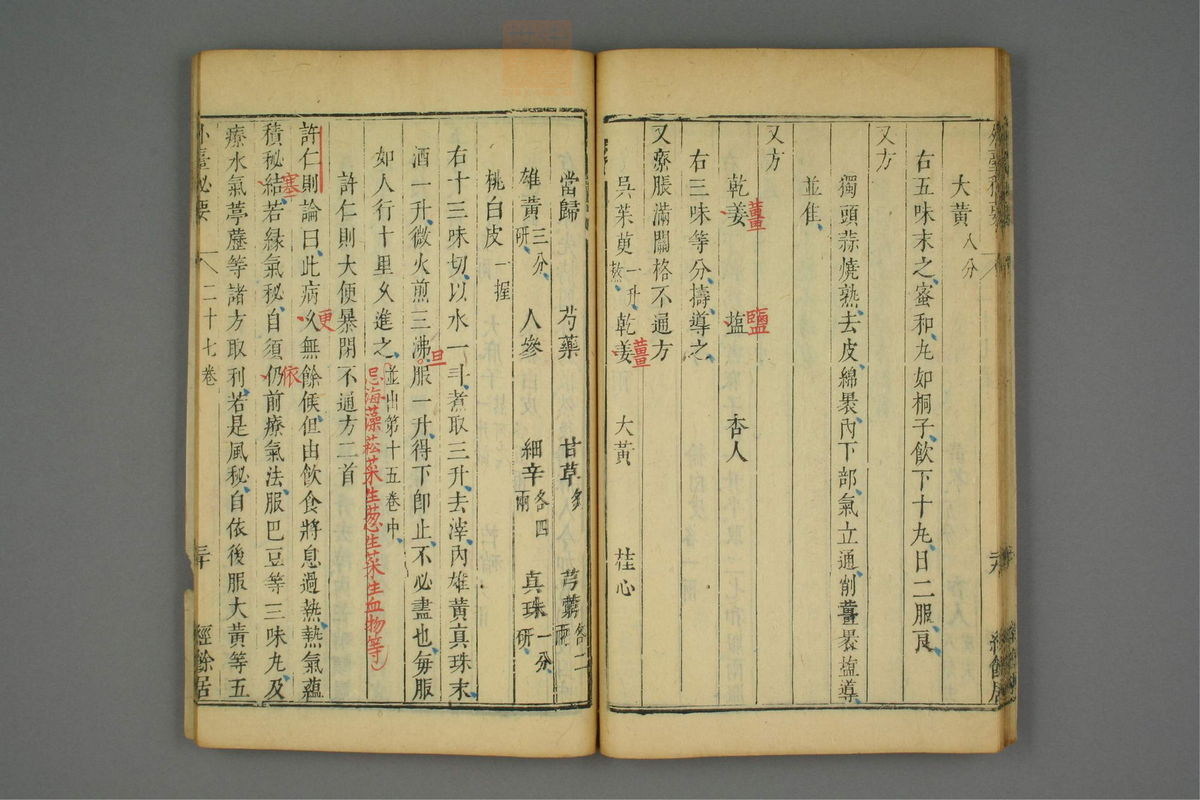 大黃八分
右五味末之蜜和丸如桐子飲下十九日二服良
又方
獨頭蒜燒熟去皮綿褁內下部氣立通削薑褁塩導
並隹
又方
乾姜 塩 杏人
薑 鹽
右三味等分擣導之
又療脹滿關格不通方
吳茱萸一升熬 乾姜 大黃 桂心
薑
當歸 芍藥 甘草炙 芎藭各二兩
雄黃三分研 人參 細辛各四兩 真珠一分研
桃白皮一握
右十三味切以水一斗煮取三升去滓內雄黃真珠末
酒一升微火煎三沸服一升得下卽止不必盡也每服
旦
如人行十里久進之並出第十五卷中
忌海藻菘菜生葱生菜生血物等
許仁則大便暴閉不通方二首
許仁則論曰此病久無餘候但由飲食將息過熱熱氣蘊
更
積秘結若緣氣秘自須仍前療氣法服巴豆等三味丸及
塞 依
療水氣葶藶等諸方取利若是風秘自依後服大黃等五
外臺秘要 二十七卷 三十 經餘居